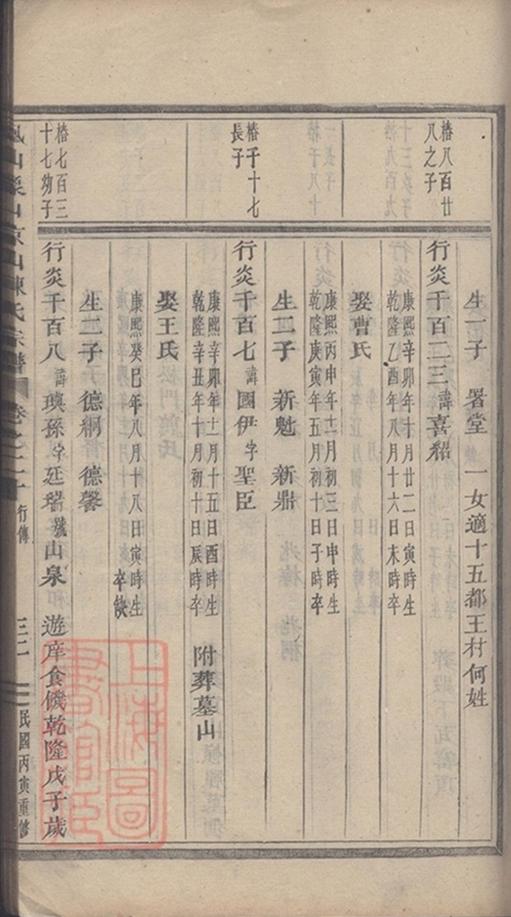 生一子 署堂 一女適十五都王村何姓
椿八百廿
八之子
行炎千百二三諱喜紹
康熙辛卯年十月廿二日寅時生
乾隆乙酉年八月十六日未時卒
娶曹氏
康熙丙申年二月初三日申時生
乾隆庚寅年五月初十日子時卒
生二子 新魁 新鼎
椿千十七
長子
行炎千百七諱國伊字聖臣
康熙辛卯年十一月十五日酉時生
乾隆辛丑年十月初十日辰時卒
附葬墓山
娶王氏
康熙癸巳年八月十八日寅時生
卒缺
生二子 德綱 德馨
椿七百三
十七幼子
行炎千百八諱瑛孫字廷瑞號山泉 遊庠食餼乾隆戊子歲
山陳氏宗譜 卷之二十 行傳 民國丙寅重修
上海圖書館藏